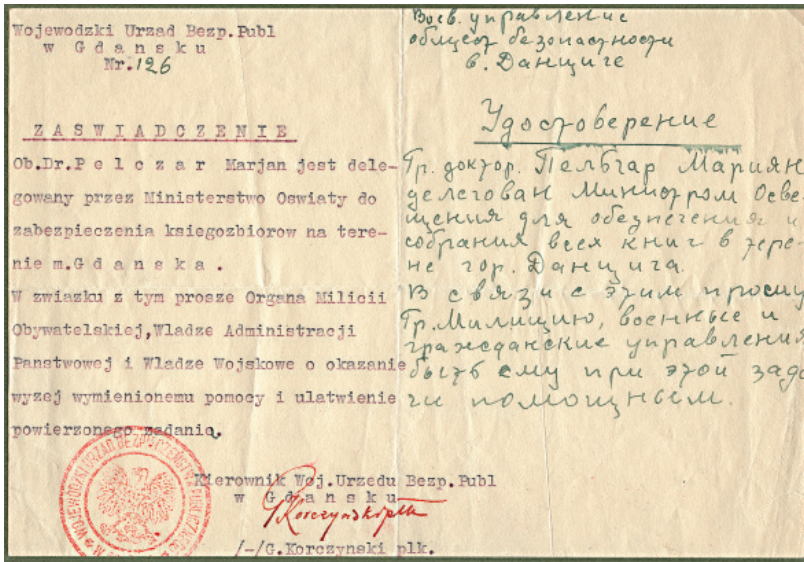 Wojewodzki Urzad Bezp.Publ
w G d a n s k u
Nr.126
Z A S W I A D C Z E N I E
Ob.Dr.P e l c z a r Marjan jest dele-
gowany przez Ministerstwo Oswiaty do
zabezpieczenia ksiegozbiorow na tere-
nie m.G d a n s k a .
W zwiazku z tym prosze Organa Milicii
Obywatelskiej,Wladze Administracji
Panstwowej i Wladze Wojskowe o okazanie
wyzej wymienionemu pomocy i ulatwienie
powierzonego zadania.
Kierownik Woj.Urzedu Bezp.Publ
w G d a n s k u
/-/G.Korczynski plk.
WOJEWÓDZKI URZĄD BEZPIECZEŃSTWA PUBLICZNEGO
GKorczyński płk
Воев. управление
общест безопасности
в. Данциге
Удостоверение
Гр. доктор. Пельчар Мариян
делегован Министром Осве-
щения для обезпечения и
собрания всех книг в тере-
не гор. Данцига.
В связи с этим прошу
Гр. Милицию, военные и
гражданские управления
быть ему при этой зада-
чи помощным.